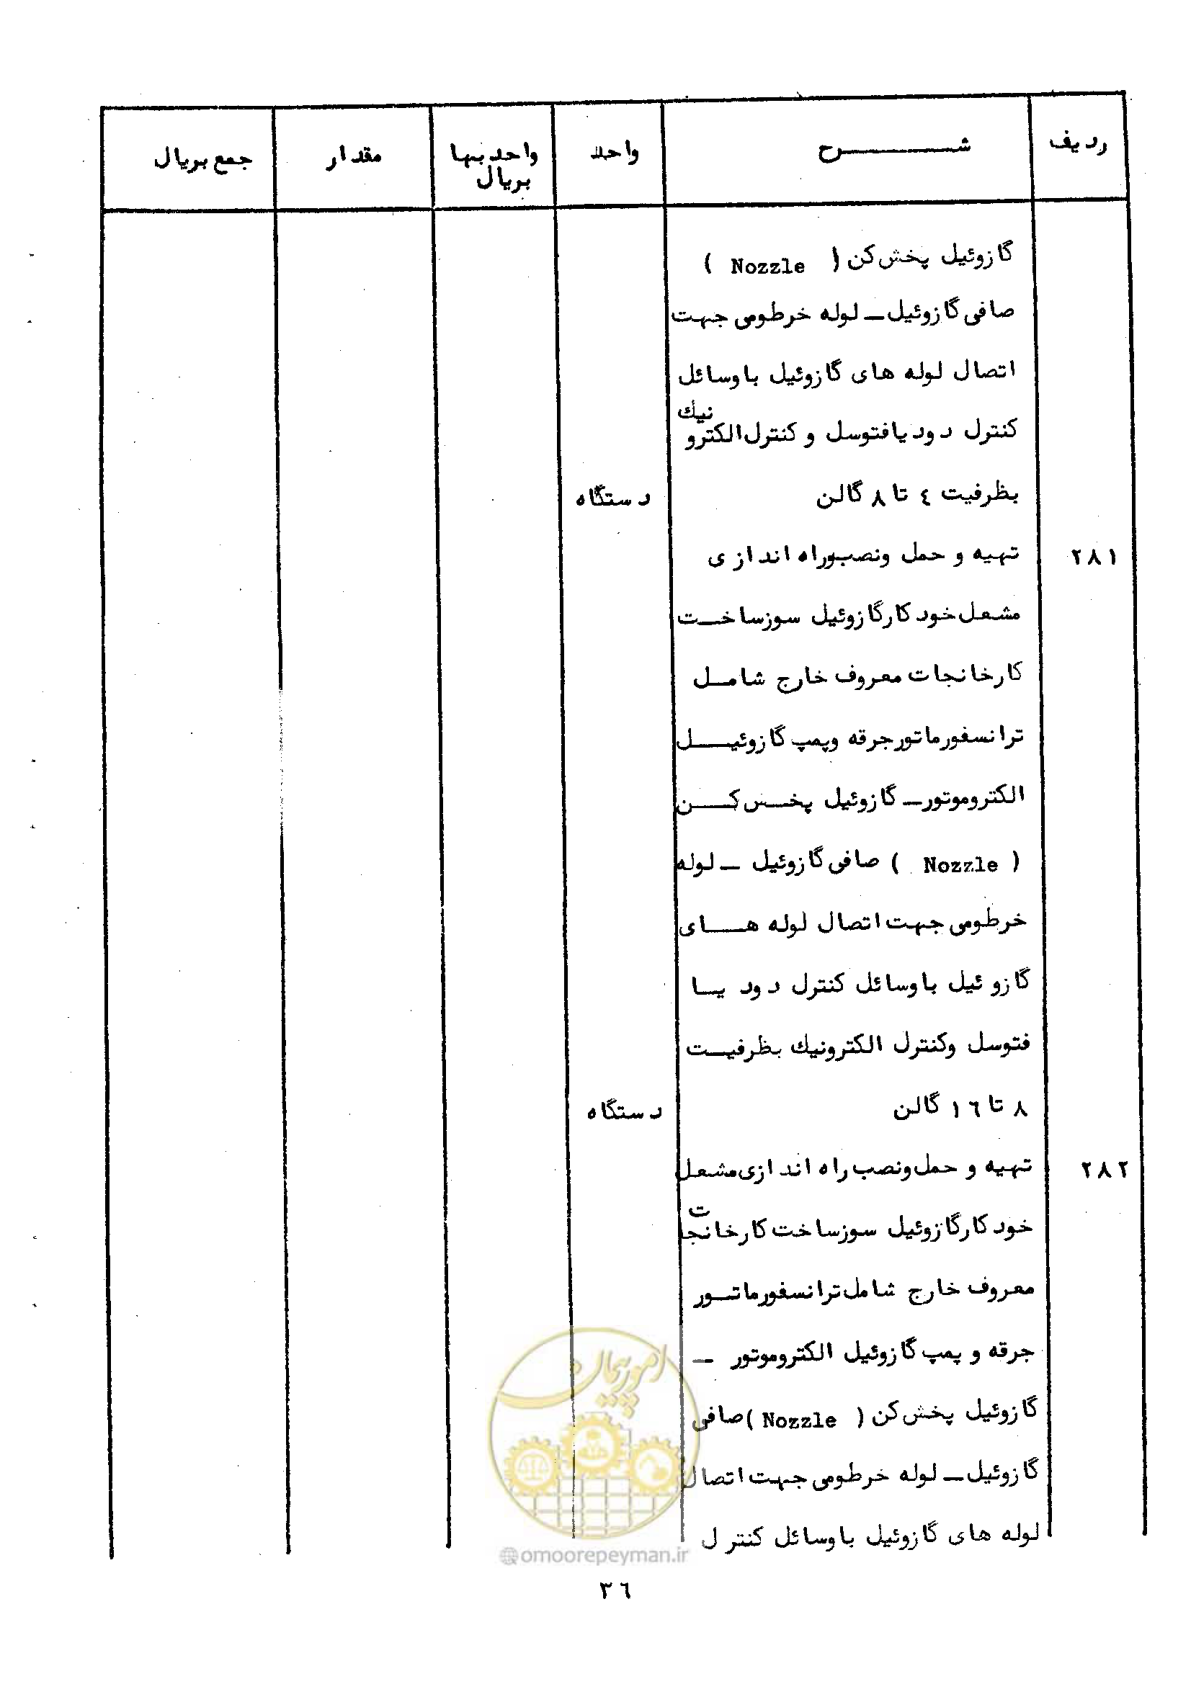 ردیف شرح واحد واحدبها مقدار جمع بریال
بریال
گازوئیل پخش‌کن ( Nozzle )
صافی گازوئیل ــ لوله خرطومی جهت
اتصال لوله های گازوئیل باوسائل
کنترل دود یافتوسل و کنترل الکترونیك
بظرفیت ٤ تا ٨ گالن دستگاه
٢٨١ تهیه و حمل ونصب‌وراه اندازی
مشعل خودکارگازوئیل سوزساخت
کارخانجات معروف خارج شامل
ترانسفورماتورجرقه وپمپ گازوئیل
الکتروموتورــ گازوئیل پخس کن
( Nozzle ) صافی گازوئیل ــ لوله
خرطومی جهت اتصال لوله های
گازوئیل باوسائل کنترل دود یا
فتوسل وکنترل الکترونیك بظرفیت
٨ تا ١٦ گالن دستگاه
٢٨٢ تهیه و حمل ونصب راه اندازی مشعل
خودکارگازوئیل سوزساخت کارخانجات
معروف خارج شامل ترانسفورماتور
جرقه و پمپ گازوئیل الکتروموتور ــ
گازوئیل پخش‌کن ( Nozzle ) صافی
گازوئیل ــ لوله خرطومی جهت اتصال
لوله های گازوئیل باوسائل کنترل
امور پیمان
@omoorepeyman.ir
٣٦